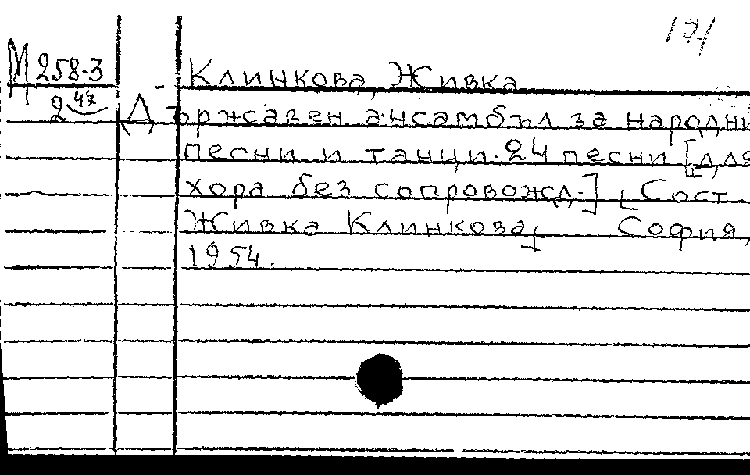 171
М 258-3 Клинкова, Живка
2 47 Държавен ансамбъл за народни
песни и танци. 24 песни [для
хора без сопровожд.] [Сост.
Живка Клинкова] София,
1954.